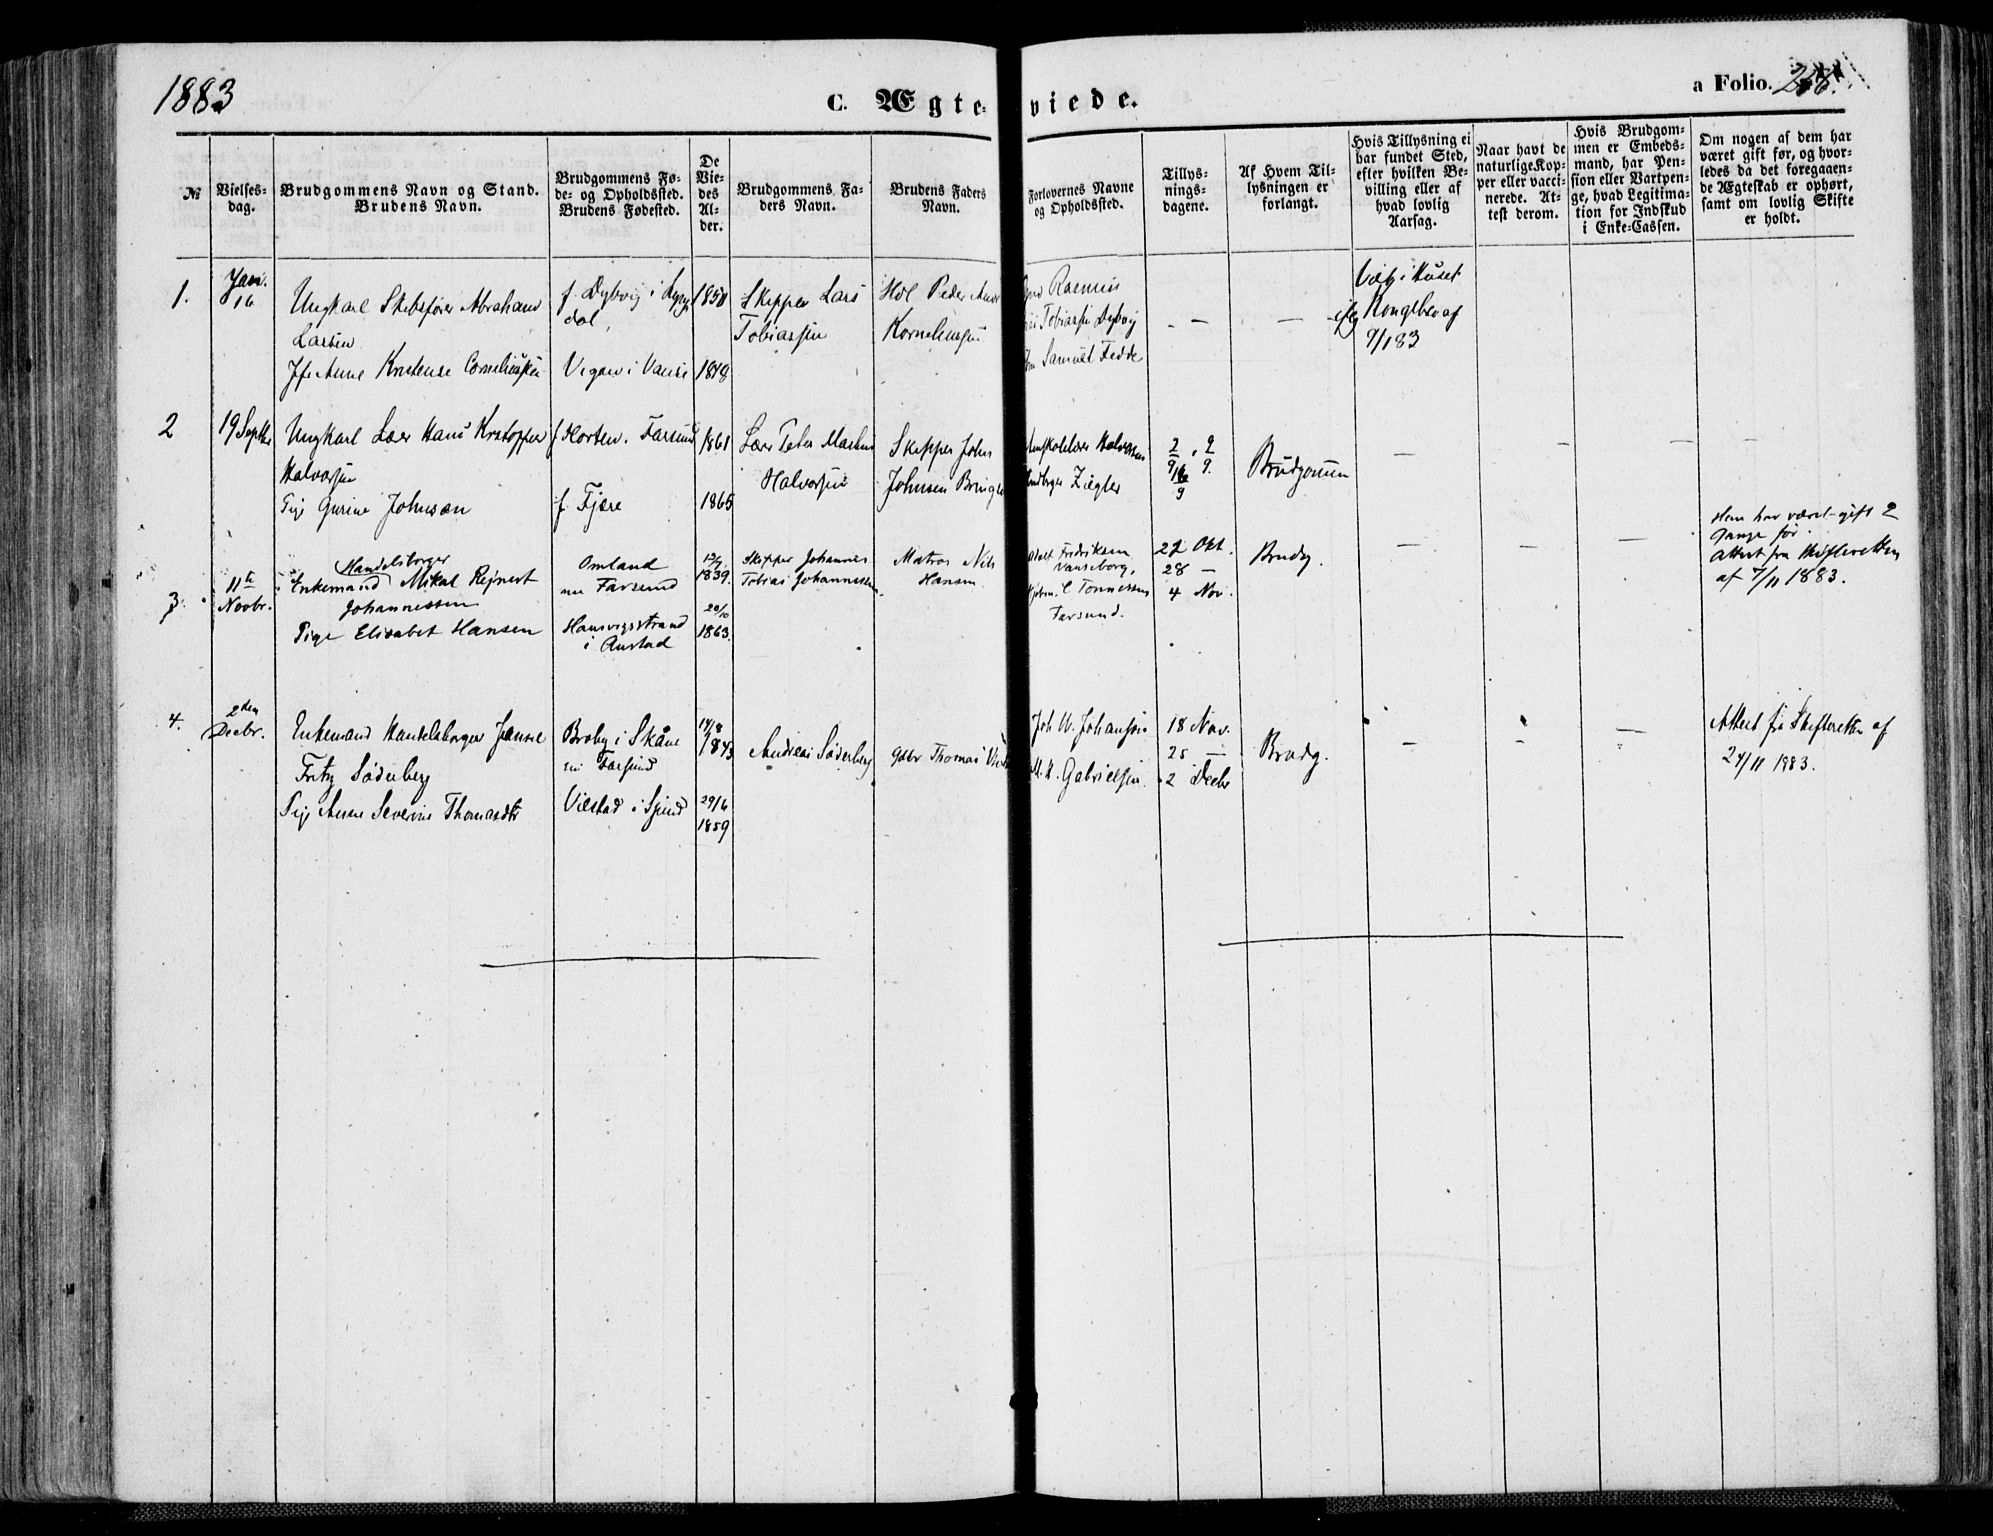 1883
C. Ægte-
viede.
a Folio.
№
Vielses-
dag.
Brudgommens Navn og Stand.
Brudens Navn.
Brudgommens Fø-
de- og Opholdssted.
Brudens Fødested.
De
Vie-
des
Al-
der.
Brudgommens Fa-
ders Navn.
Brudens Faders
Navn.
Forlovernes Navne
og Opholdssted.
Tillys-
nings-
dagene.
Af Hvem Til-
lysningen er
forlangt.
Hvis Tillysning ei
har fundet Sted,
efter hvilken Be-
villing eller af
hvad lovlig
Aarsag.
Naar havt de
naturlige Kop-
per eller vacci-
nerede. At-
test derom.
Hvis Brudgom-
men er Embeds-
mand, har Pen-
sion eller Vartpen-
ge, hvad Legitima-
tion for Indskud
i Enke-Cassen.
Om nogen af dem har
været gift før, og hvor-
ledes da det foregaaen-
de Ægteskab er ophørt,
samt om lovlig Skifte
er holdt.
1.
Jan.
16
Ungkarl Skibsfører Abraham
Larsen
Anne Kristense Corneliussen
f. Dybvig i
dal
i Vanse
1850
1848
Skipper Lars
Tobiassen
Peder
Korneliussen
Rasmus
Tobiassen Dybvig
Samuel Fedde
Viet i Huset
Kongebrev af
9/1 83
2
19 Septbr
Ungkarl Lærer Hans Kristoffer
Halvorsen
Pige Gurine Johnsen
f Horten. Farsund
f. Fjære
1861
1865
Lærer Peter Markus
Halvorsen
Skipper John
Johnsen Bringe
Halvorsen
Ziegler
2/9 . 9/9.
16/9
Brudgommen
3.
11te
Novbr.
Handelsborger
Enkemand Mikal Rejnert
Johannessen
Pige Elisabet Hansen
Omland
nu Farsund
Hansvigsstrand
i Austad
1839.
20/10
1863.
Skipper Johannes
Tobias Johannessen
Matros Nils
Hansen
Fredriksen
Vanseborg,
C Tønnessen
Farsund.
22 Okt.
28 —
4 Nov.
Brudg.
Han har været gift 2
Gange før
Attest fra Skifteretten
af 7/11 1883.
4.
2den
Decbr.
Enkemand Handelsborger
Fritz Søderberg
Pige Anne Severine Thomasdtr
Broby i Skåne
nu Farsund
Vilstad i Spind
14/8
1843
29/6
1859
Andreas Søderberg
Gdbr Thomas
Joh W. Johansson
M. H. Gabrielsen
18 Nov.
25 —
2 Decbr
Brudg.
Attest fra Skifteretten af
24/11 1883.